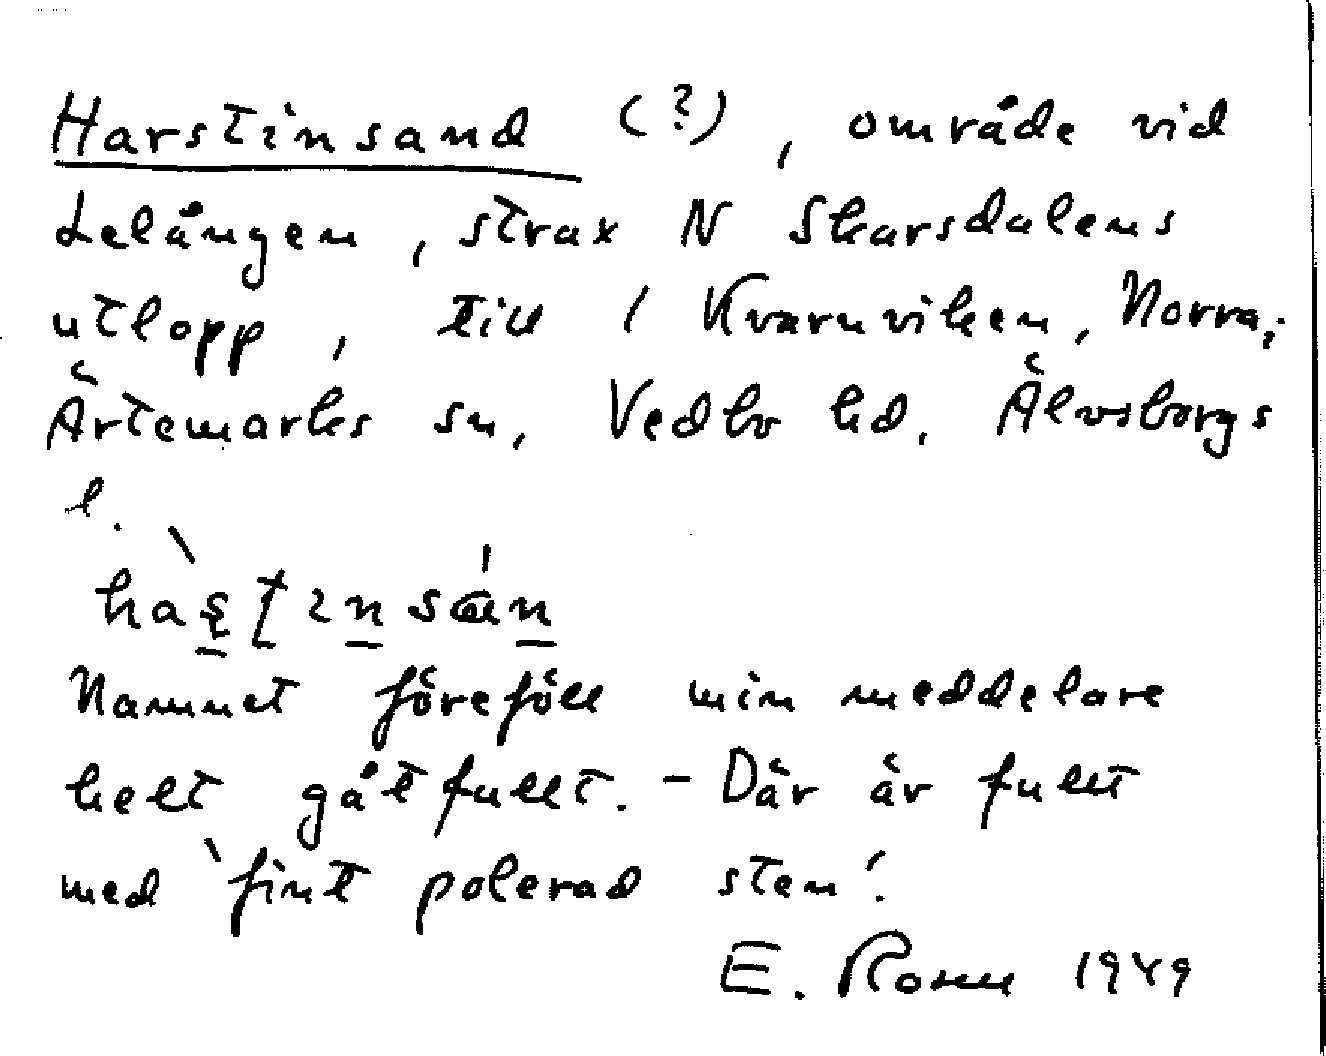 Harstinsand (?), område vid
Lelången, strax N Skarsdalens
utlopp, till 1 Kvarnviken, Norra,
Ärtemarks sn, Vedbo hd. Älvsborgs
l.
Namnet föreföll min meddelare
helt gåtfullt. - Där är fullt
med 'fint polerad sten'.
E. Rosell 1949